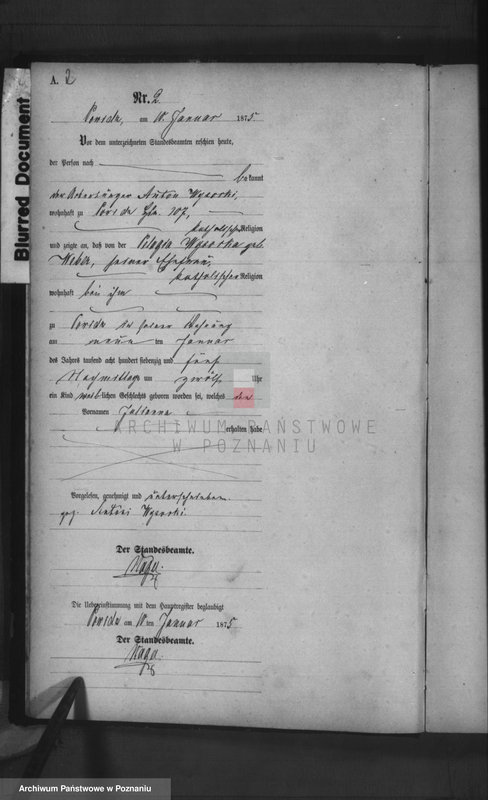 Blurred Document
A. 2
Nr. 2
am 11. Januar 1875.
Vor dem unterzeichneten Standesbeamten erschien heute,
der Person nach
bekannt
der Ackerbürger Anton Wysocki,
wohnhaft zu 107,
katholischer Religion
und zeigte an, daß von der Pelagia Wysocka geb.
seiner Ehefrau,
katholischer Religion
wohnhaft bei ihm
zu in seiner Wohnung
am neunten Januar
des Jahres tausend acht hundert siebenzig und fünf
Nachmittags um zwölf Uhr
ein Kind weiblichen Geschlechts geboren worden sei, welches den
Vornamen Julianna
erhalten habe
ARCHIWUM PAŃSTWOWE
W POZNANIU
Vorgelesen, genehmigt und unterschrieben
gez. Wysocki.
Der Standesbeamte.
Die Uebereinstimmung mit dem Hauptregister beglaubigt
am 11 ten Januar 1875
Der Standesbeamte.
Archiwum Państwowe w Poznaniu